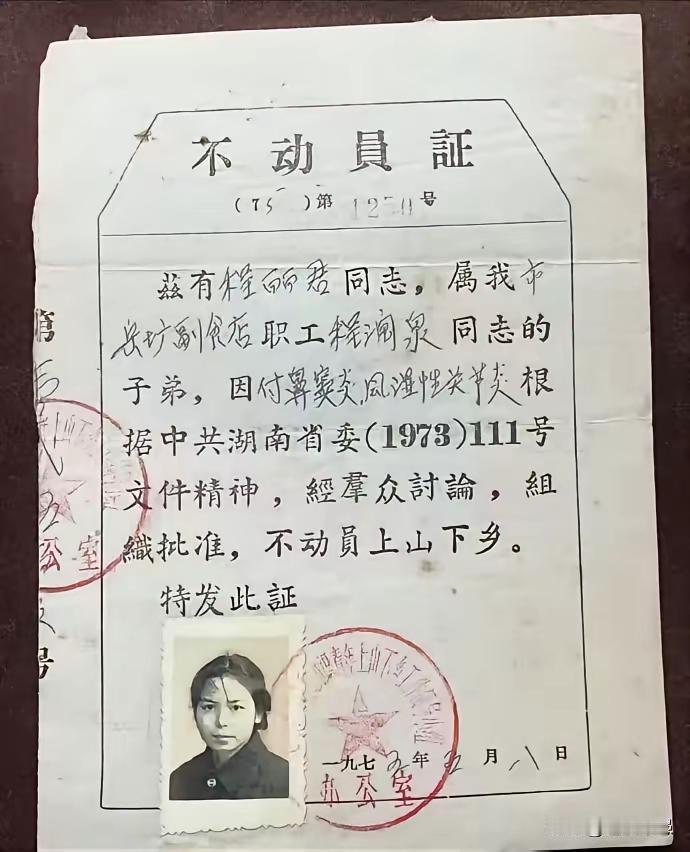 不动員証
(75)第1250号
茲有程丽君同志，属我市
长圹副食店职工程润泉同志的
子弟，因付鼻窦炎、风湿性关节炎根
据中共湖南省委(1973)111号
文件精神，經羣众討論，組
織批准，不动員上山下乡。
特发此証
青年上山下乡工作
办公室
一九七五年五月八日
第
五
公室
号